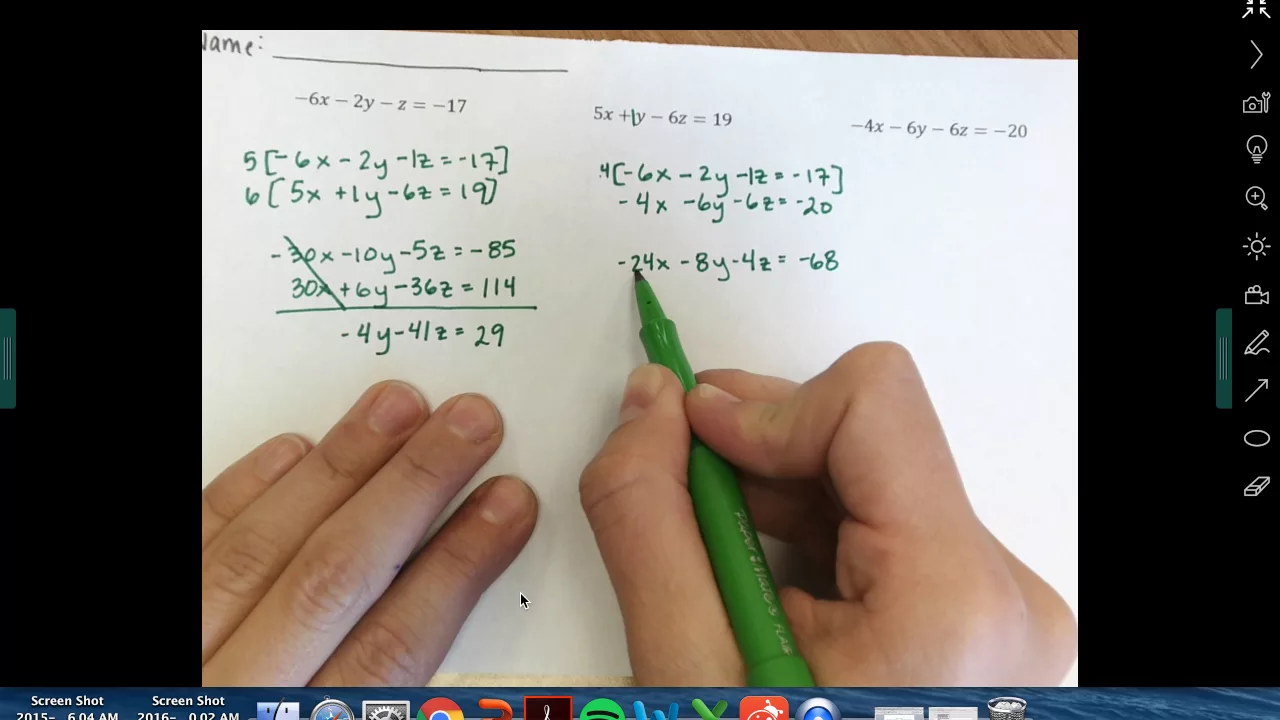 Name:
−6x − 2y − z = −17
5x + 1y − 6z = 19
−4x − 6y − 6z = −20
5[-6x - 2y - 1z = -17]
6[5x + 1y - 6z = 19]
-30x - 10y - 5z = -85
30x + 6y - 36z = 114
-4y - 41z = 29
4[-6x - 2y - 1z = -17]
-4x - 6y - 6z = -20
-24x - 8y - 4z = -68
Paper:Mate's FLAIR
Screen Shot
2015-...6.04 AM
Screen Shot
2016-...1.02 AM